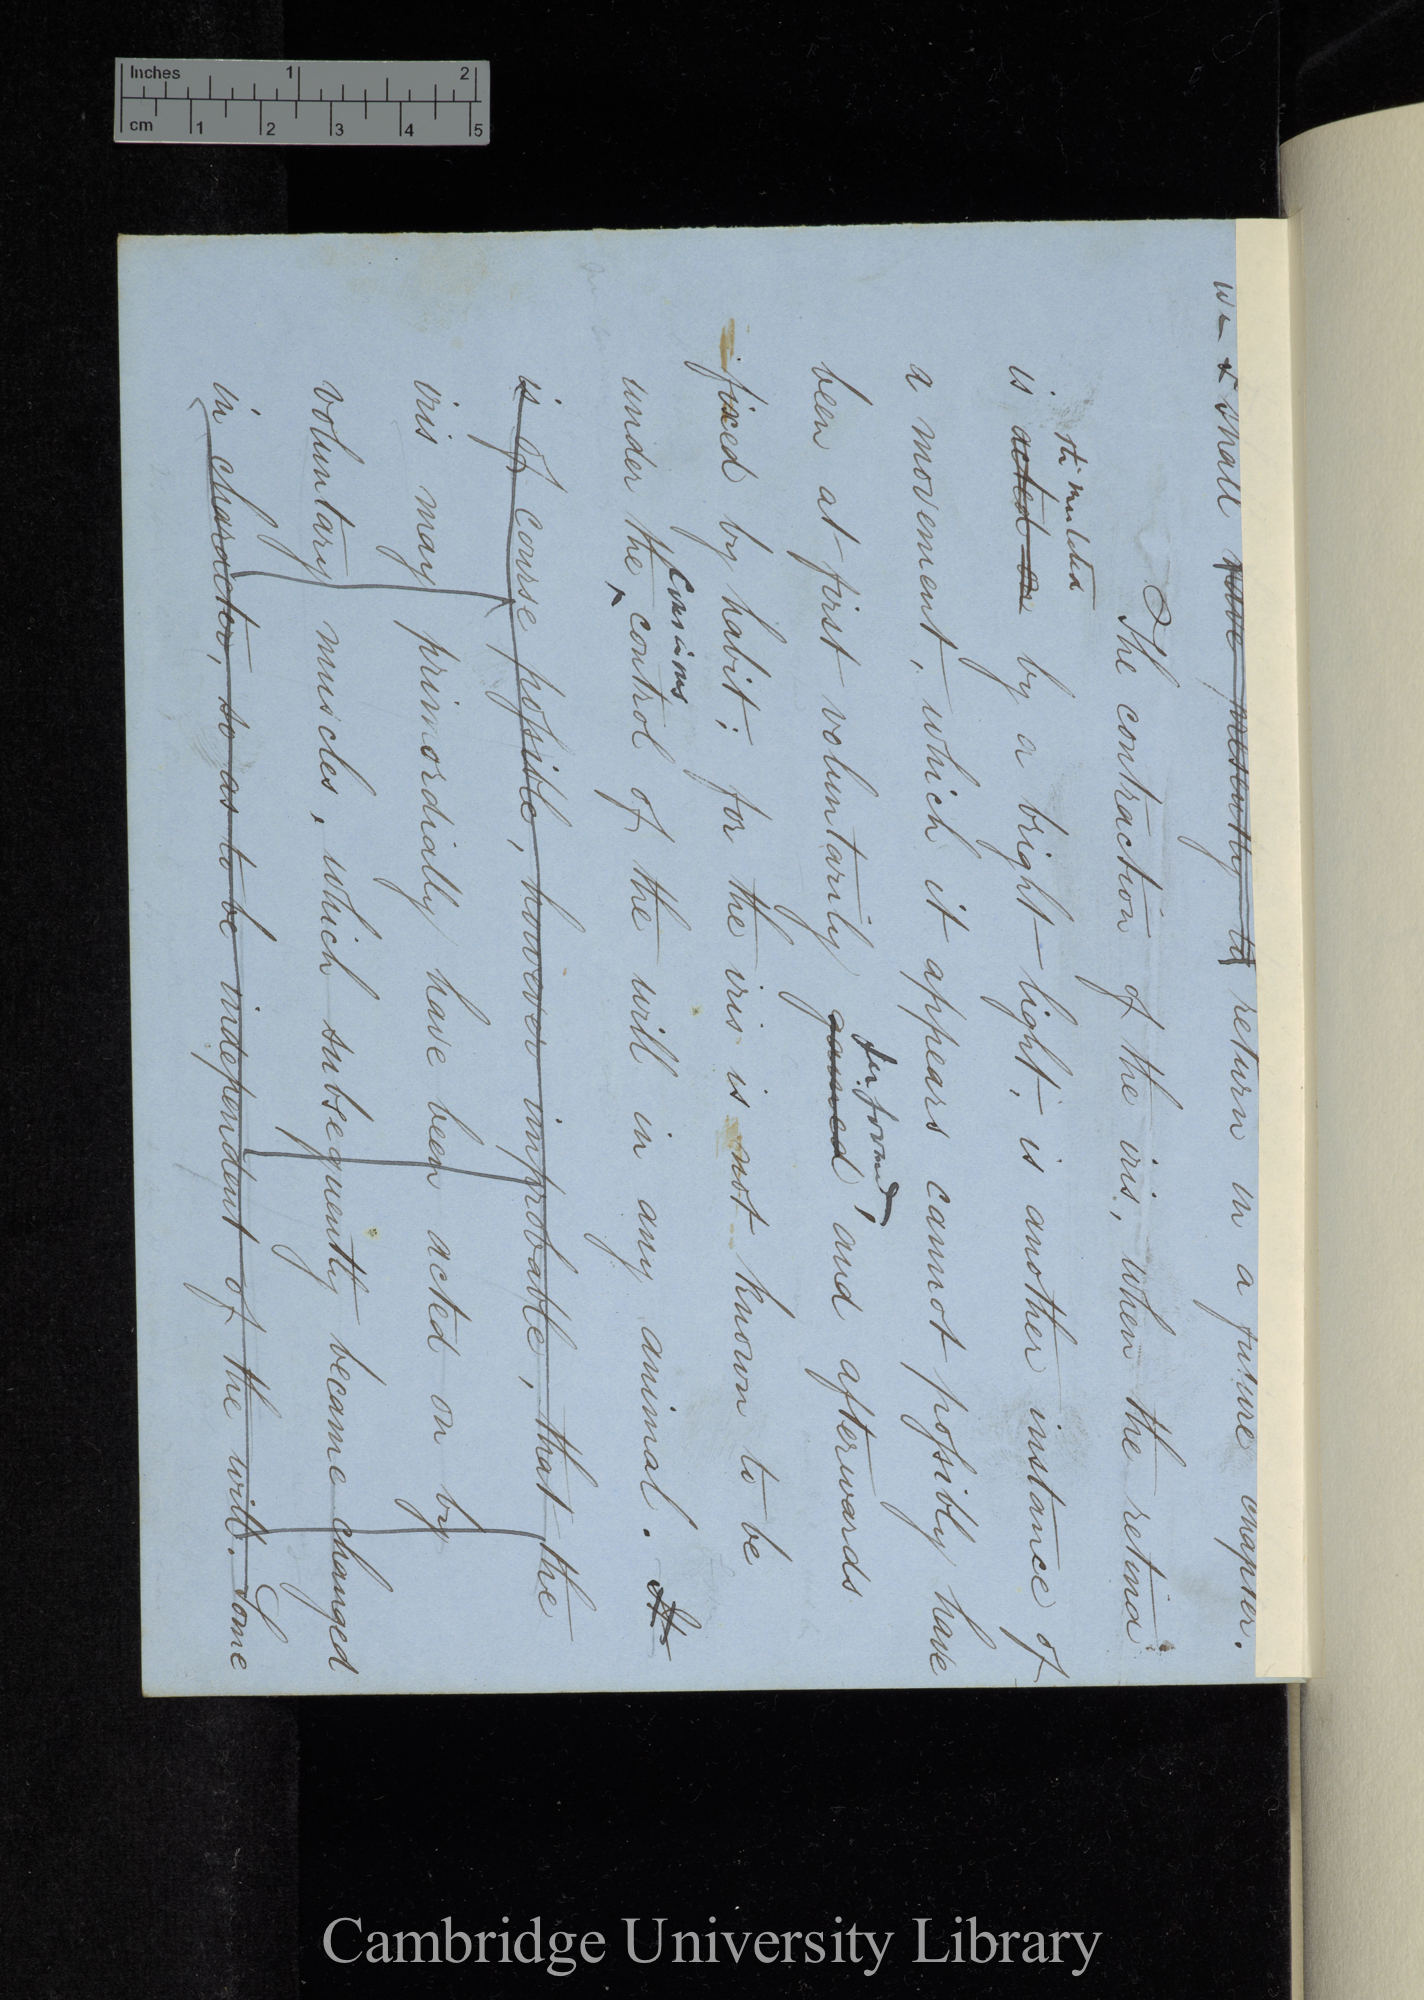 Inches 1 2
cm 1 2 3 4 5
we I shall have presently to return in a future chapter.
The contraction of the iris, when the retina
stimulated
is acted on by a bright light, is another instance of
a movement, which it appears cannot possibly have
performed,
been at first voluntarily gained and afterwards
fixed by habit; for the iris is not known to be
conscious
under the control of the will in any animal. It
is of course possible, however improbable, that the
iris may primordially have been acted on by
voluntary muscles, which subsequently became changed
in character, so as to be independent of the will. Some
Cambridge University Library